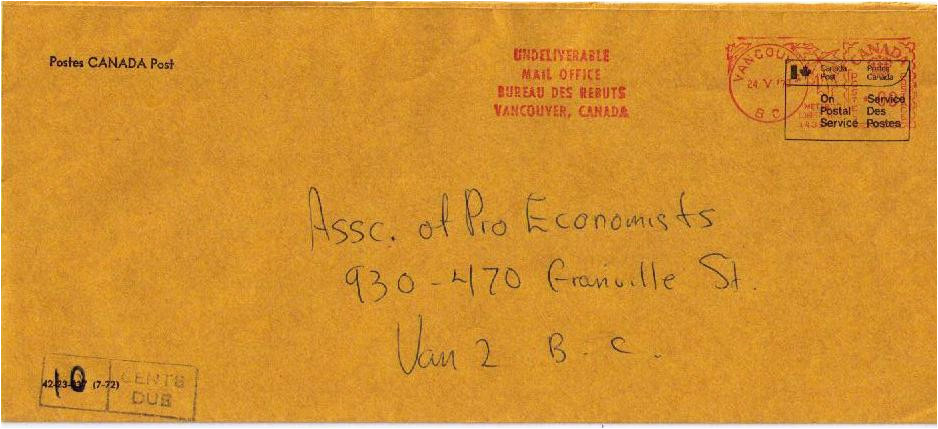 Postes CANADA Post
UNDELIVERABLE
MAIL OFFICE
BUREAU DES REBUTS
VANCOUVER, CANADA
VANCOUV
24 V
B C
CANADA
Canada Post
Postes Canada
On Postal Service
Service Des Postes
Assc. of Pro Economists
930-470 Granville St.
Van 2 B.C.
10 CENTS DUE
(7-72)